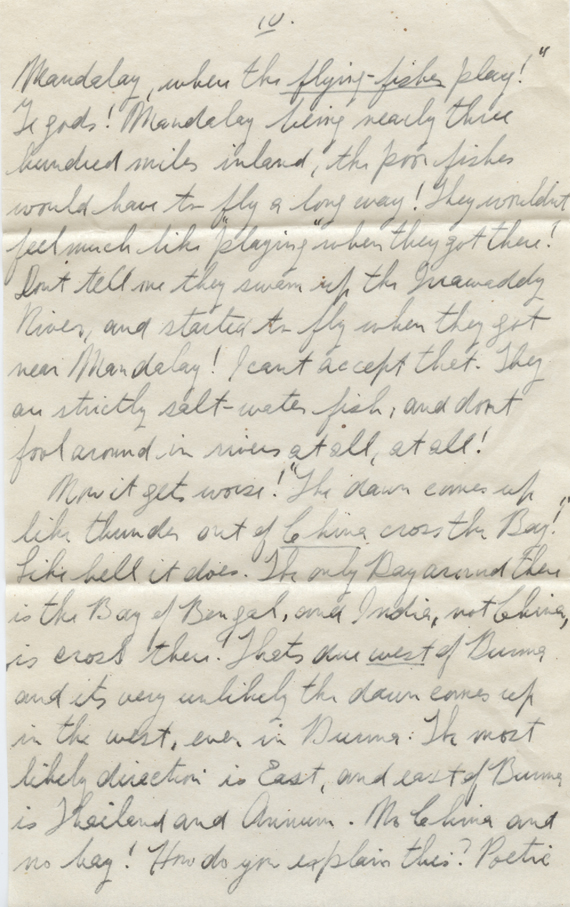 10.
Mandalay, when the flying-fishes play!"
Ye gods! Mandalay being nearly three
hundred miles inland, the poor fishes
would have to fly a long way! They wouldn't
feel much like "playing" when they got there!
Dont tell me they swam up the Irrawaddy
River, and started to fly when they got
near Mandalay! I cant accept that. They
are strictly salt-water fish, and dont
fool around in rivers at all, at all!
Now it gets worse! "The dawn comes up
like thunder out of China cross the Bay!"
Like hell it does. The only Bay around there
is the Bay of Bengal, and India, not China,
is cross there! Thats due west of Burma
and its very unlikely the dawn comes up
in the west, even in Burma. The most
likely direction is East, and east of Burma
is Thailand and Annum. No China and
no bay! How do you explain this? Poetic